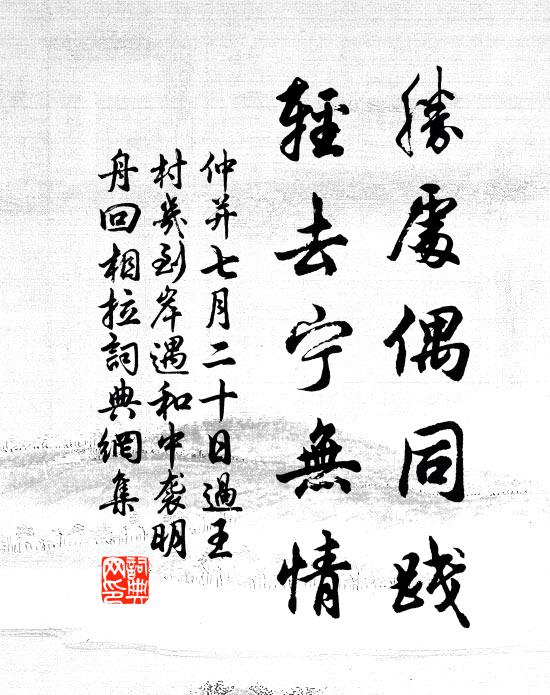 勝處偶同踐
輕去宁無情
仲并七月二十日過王
村炭到岸遇和中袭明
舟回相拉詞典網集
詞典网印